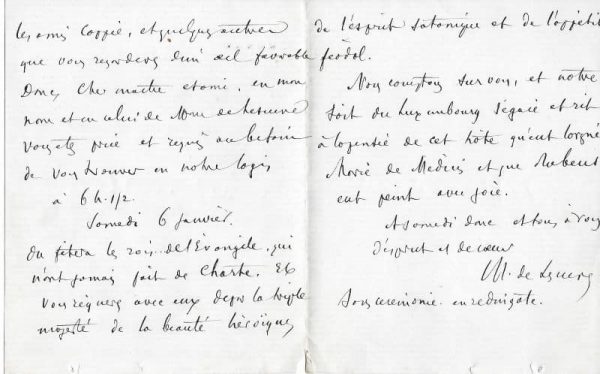 les amis Coppée, et quelques autres
que vous regardez d'un œil favorable
Donc, cher maître et ami, en mon
nom et en celui de Mme de Lescure
vous êtes prié et requis au besoin
de vous trouver en notre logis
à 6 h. 1/2
Samedi 6 janvier.
On fêtera les rois.. de l'Évangile, qui
n'ont jamais fait de Charte. Et
vous règnerez avec eux de par la triple
majesté de la beauté héroïque,
de l'esprit satanique et de l'appétit
féodal.
Nous comptons sur vous, et notre
toit du Luxembourg s'égaie et rit
à la pensée de cet hôte qu'eut lorgné
Marie de Medicis et que Rubens
eut peint avec joie.
A samedi donc et tous à vous
d'esprit et de cœur
M. de Lescure
Sans ceremonie. en redingote.